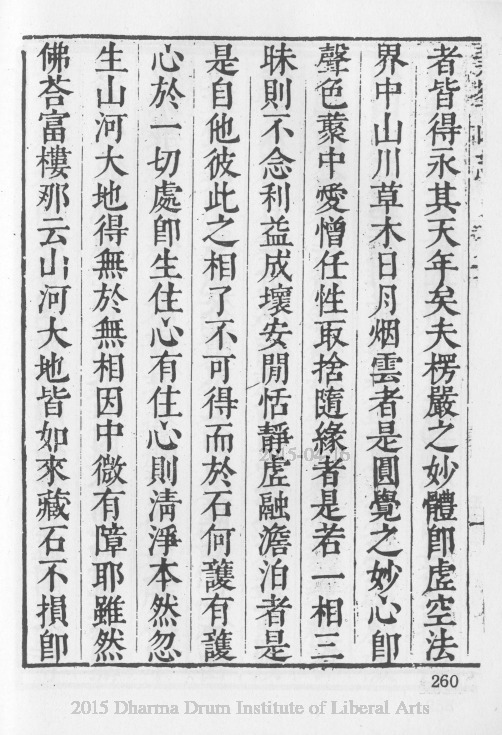 者皆得永其天年矣夫楞嚴之妙體卽虛空法
界中山川草木日月烟雲者是圓覺之妙心卽
聲色藂中愛憎任性取捨隨緣者是若一相三
昧則不念利益成壞安閒恬靜虛融澹泊者是
是自他彼此之相了不可得而於石何護有護
心於一切處卽生住心有住心則清淨本然忽
生山河大地得無於無相因中微有障耶雖然
佛荅富樓那云山河大地皆如來藏石不損卽
260
2015-04-16
2015 Dharma Drum Institute of Liberal Arts